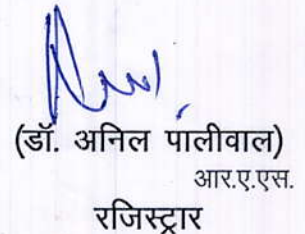 (डॉ. अनिल पालीवाल)
आर.ए.एस.
रजिस्ट्रार